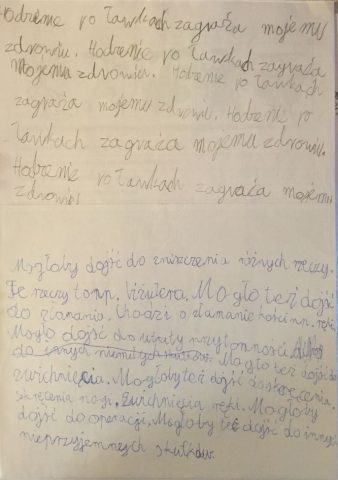 Hodzenie po ławkach zagraża mojemu
zdrowiu. Hodzenie po ławkach zagraża
mojemu zdrowiu. Hodzenie po ławkach
zagraża mojemu zdrowiu. Hodzenie po
ławkach zagraża mojemu zdrowiu.
Hodzenie po ławkach zagraża mojemu
zdrowiu
Mogłoby dojść do zniszczenia różnych rzeczy.
Te rzeczy to np. biżuteria. Mogło też dojść
do złamania. Chodzi o złamanie kości np. ręki.
Mogło dojść do utraty przytomności
do innych skutków. Mogło też dojść do
zwichnięcia. Mogłoby też dojść do skręcenia.
skręcenia nogi. Zwichnięcia ręki. Mogłoby
dojść do operacji. Mogłoby też dojść do innych
nieprzyjemnych skutków.